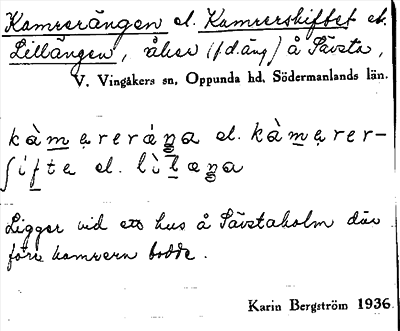 Kamrerängen el. Kamrerskiftet el.
Lillängen, åker (f d. äng) å Sävsta,
V. Vingåkers sn, Oppunda hd, Södermanlands län.
kàmereráŋa el. kàmerer-
ʃifte el. lìlæŋa
Ligger vid ett hus å Sävstaholm där
förr kamrern bodde.
Karin Bergström 1936